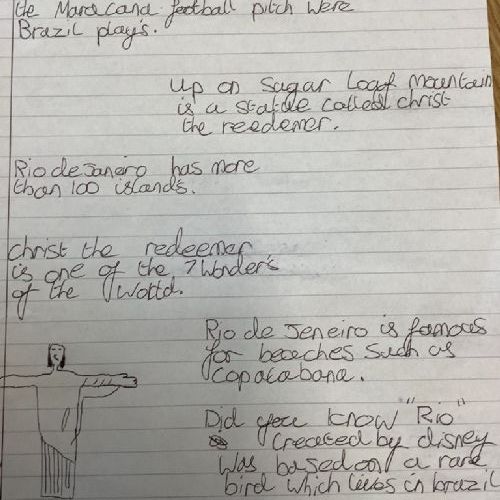 the Maracana football pitch were
Brazil play's.
Up on Sugar Loaf Mountain
is a statue called christ
the reedemer.
Rio de Janeiro has more
than 100 islands.
christ the redeemer
is one of the 7 Wonder's
of the World.
Rio de Jeneiro is famous
for beaches such as
Copacabana.
Did you know "Rio"
created by disney
was based on a rare
bird which lives in brazil